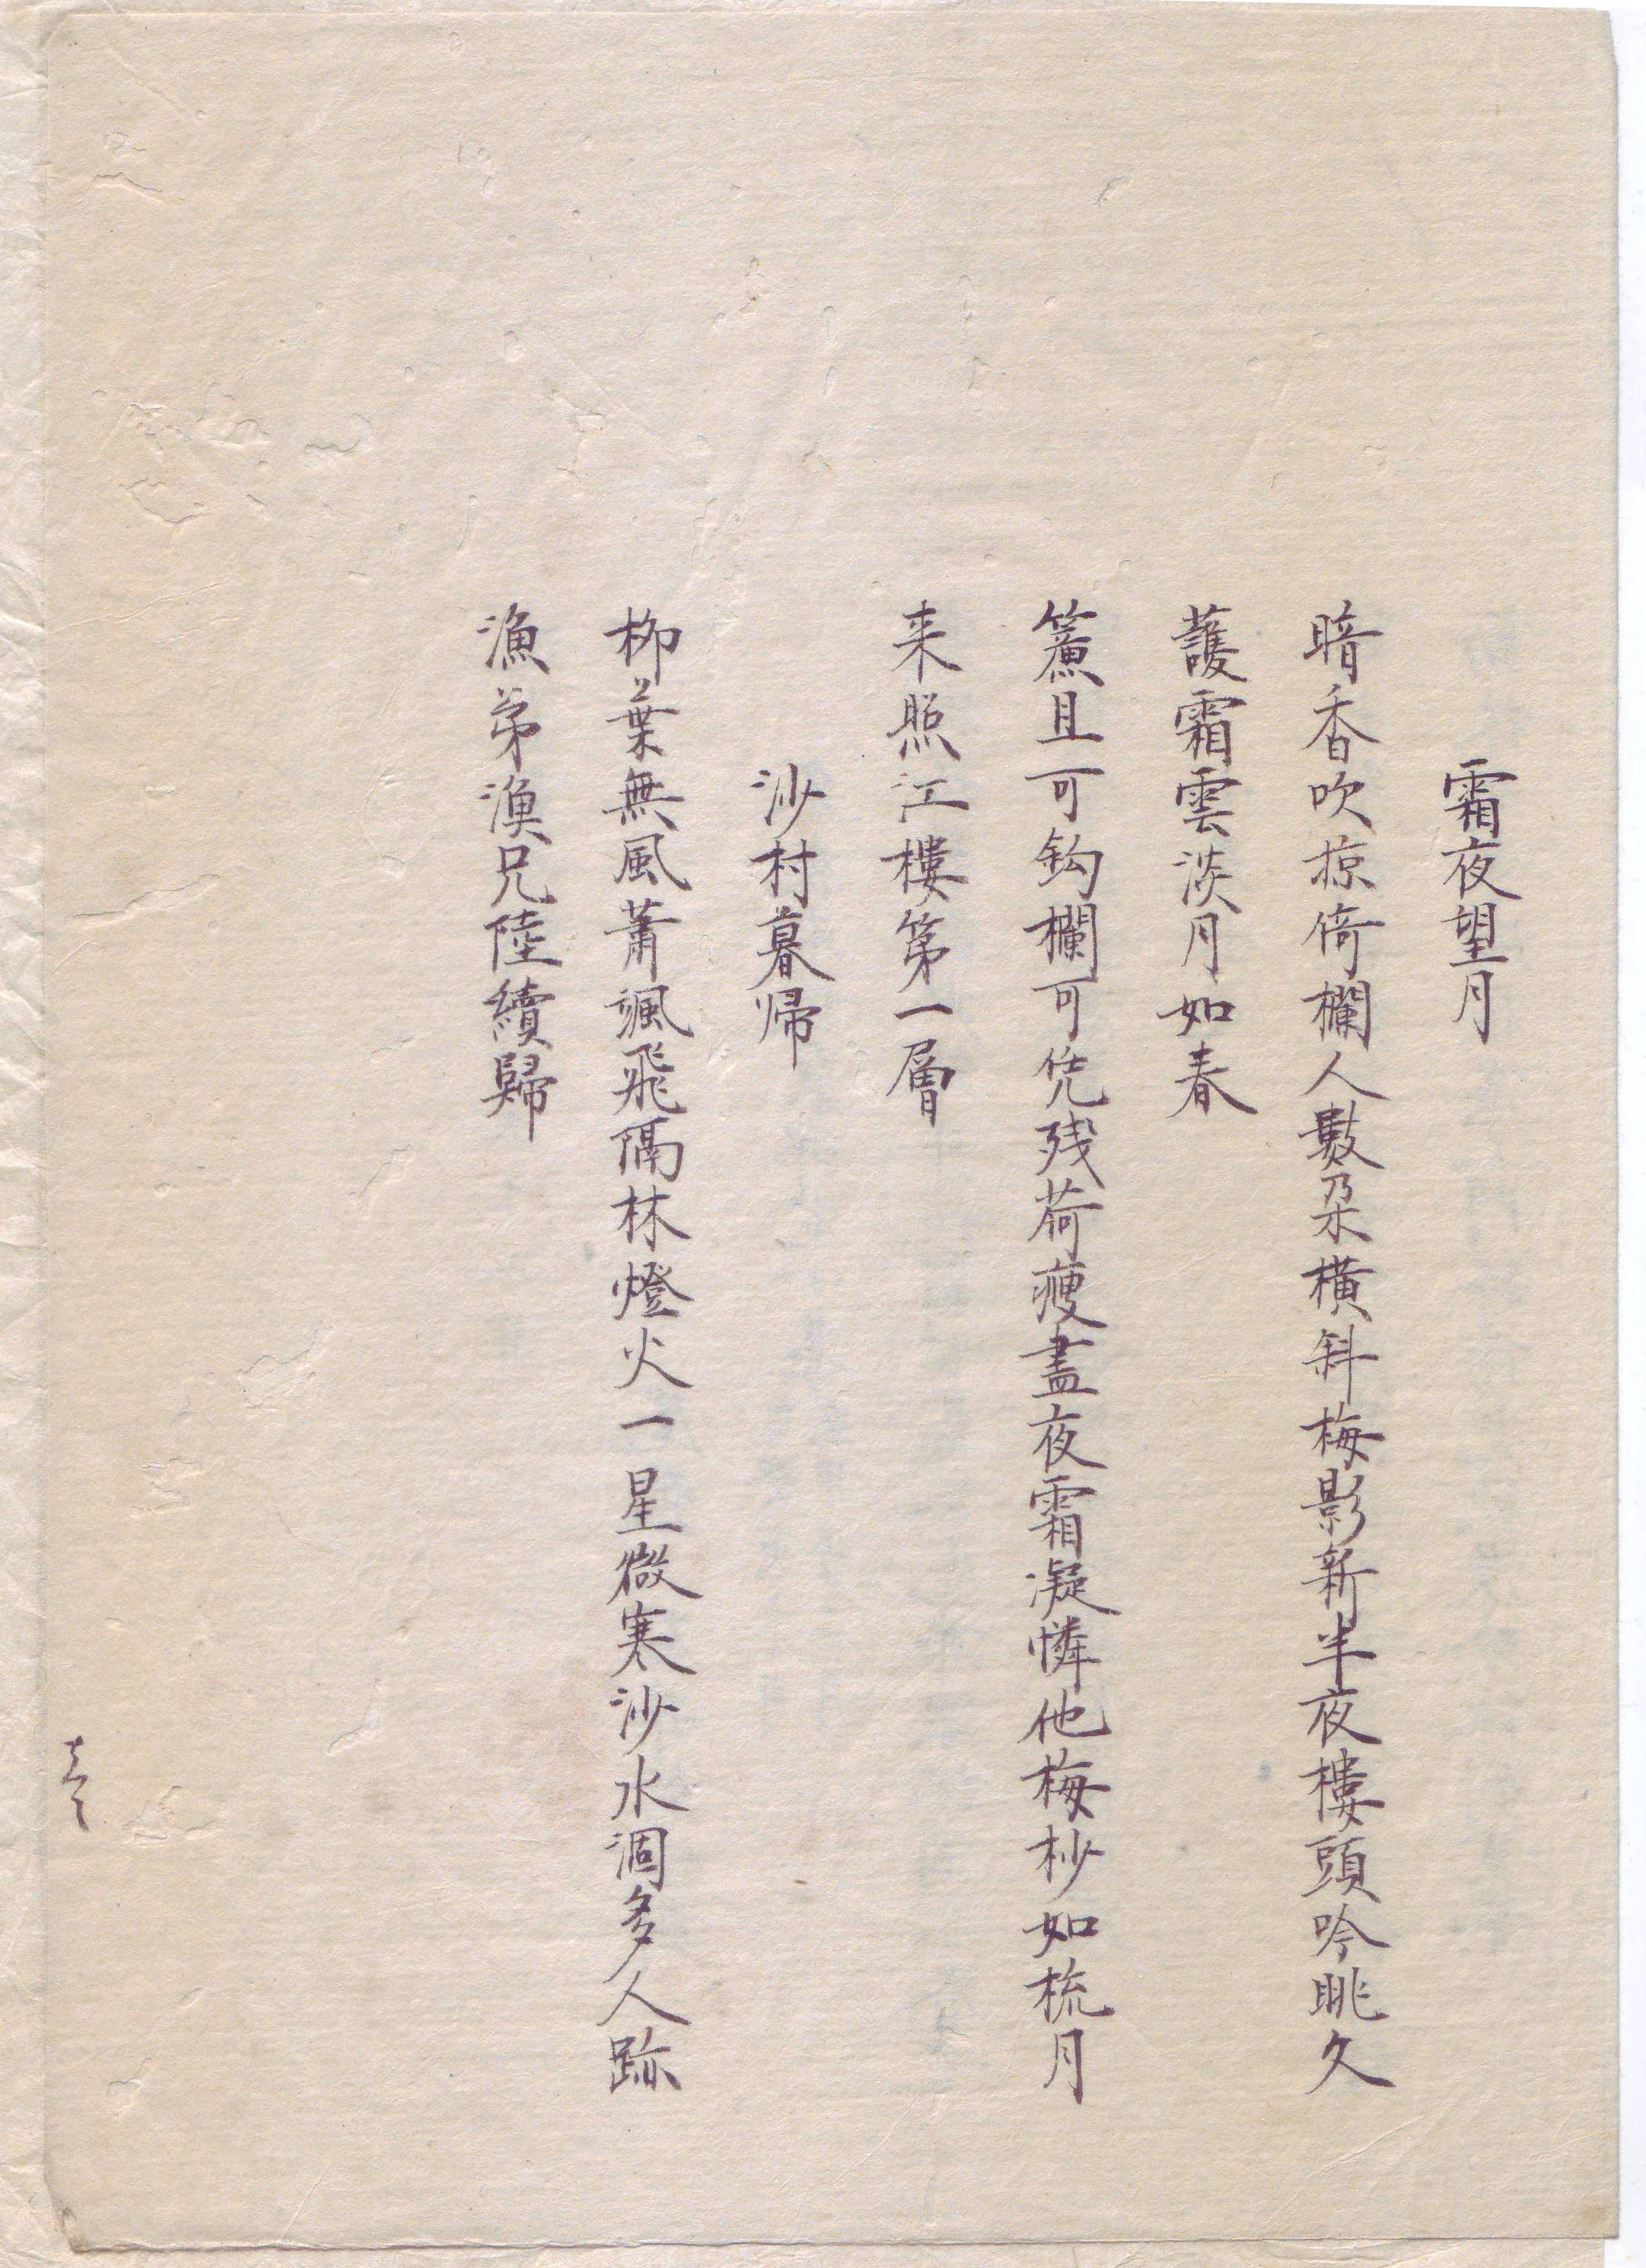 霜夜望月
暗香吹掠倚欄人數朶橫斜梅影新半夜樓頭吟眺久
護霜雲淡月如春
簾且可鈎欄可凭残荷瘦盡夜霜凝憐他梅杪如梳月
来照江樓第一層
沙村暮帰
柳葉無風蕭颯飛隔林燈火一星微寒沙水涸多人跡
漁弟漁兄陸續歸